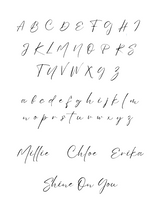 A B C D E F G H I
J K L M N O P Q R S
T U V W X Y Z
a b c d e f g h i j k l m
n o p q r s t u v w x y z
Millie Chloe Erika
Shine On You